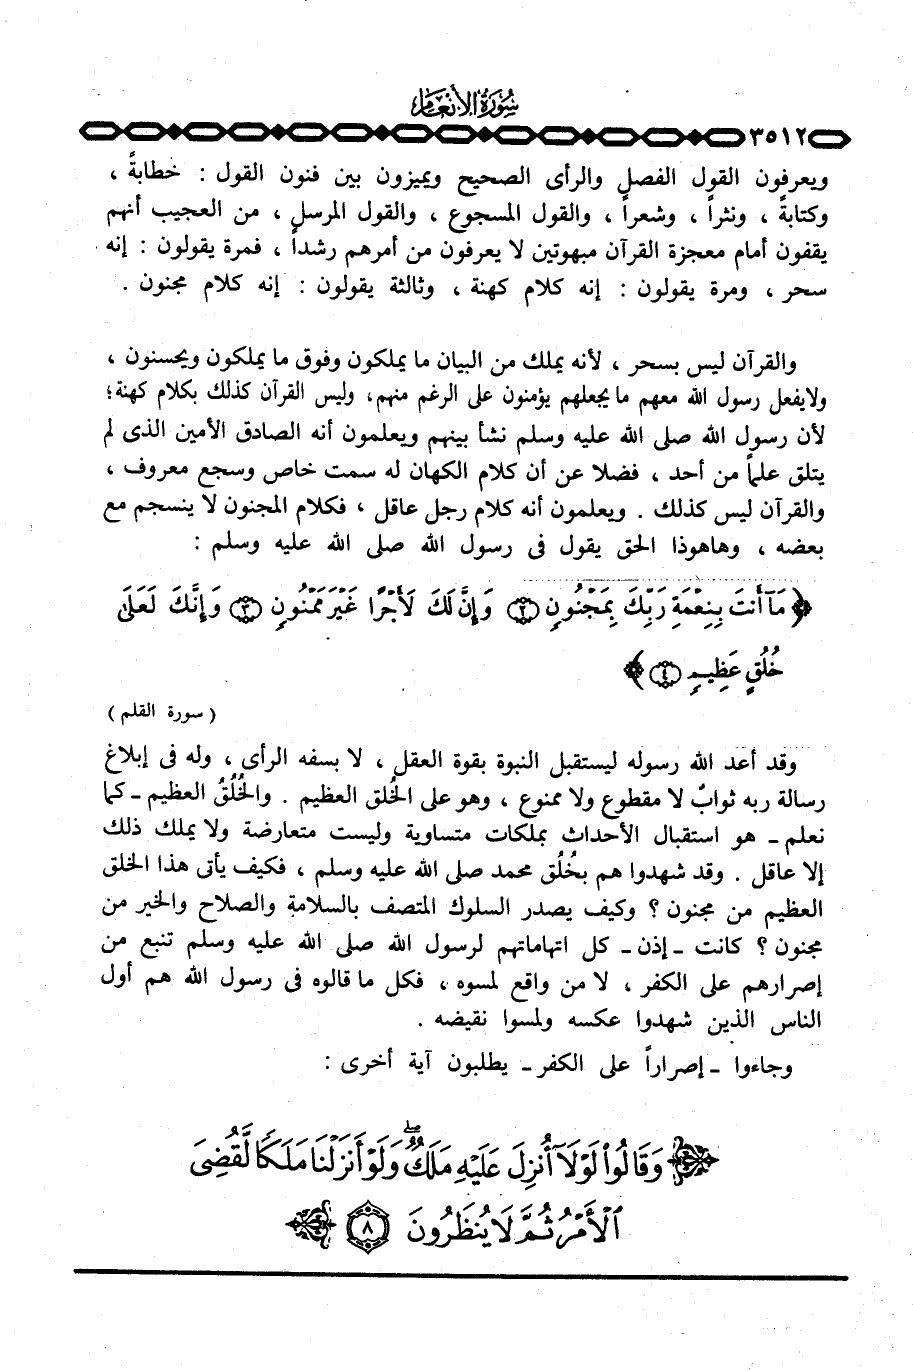 سُورَةُ الأنْعَامِ
٣٥١٢
ويعرفون القول الفصل والرأى الصحيح ويميزون بين فنون القول : خطابةً ،
وكتابةً ، ونثراً ، وشعراً ، والقول المسجوع ، والقول المرسل ، من العجيب أنهم
يقفون أمام معجزة القرآن مبهوتين لا يعرفون من أمرهم رشداً ، فمرة يقولون : إنه
سحر ، ومرة يقولون : إنه كلام كهنة ، وثالثة يقولون : إنه كلام مجنون .
والقرآن ليس بسحر ، لأنه يملك من البيان ما يملكون وفوق ما يملكون ويحسنون ،
ولايفعل رسول الله معهم ما يجعلهم يؤمنون على الرغم منهم، وليس القرآن كذلك بكلام كهنة؛
لأن رسول الله صلى الله عليه وسلم نشأ بينهم ويعلمون أنه الصادق الأمين الذى لم
يتلق علماً من أحد ، فضلا عن أن كلام الكهان له سمت خاص وسجع معروف ،
والقرآن ليس كذلك . ويعلمون أنه كلام رجل عاقل ، فكلام المجنون لا ينسجم مع
بعضه ، وهاهوذا الحق يقول فى رسول الله صلى الله عليه وسلم :
﴿ مَآ أَنتَ بِنِعْمَةِ رَبِّكَ بِمَجْنُونٍ ۝٢ وَإِنَّ لَكَ لَأَجْرًا غَيْرَ مَمْنُونٍ ۝٣ وَإِنَّكَ لَعَلَىٰ
خُلُقٍ عَظِيمٍ ۝٤ ﴾
( سورة القلم )
وقد أعد الله رسوله ليستقبل النبوة بقوة العقل ، لا بسفه الرأى ، وله فى إبلاغ
رسالة ربه ثوابٌ لا مقطوع ولا ممنوع ، وهو على الخُلق العظيم . والخُلُقُ العظيم - كما
نعلم - هو استقبال الأحداث بملكات متساوية وليست متعارضة ولا يملك ذلك
إلا عاقل . وقد شهدوا هم بخُلُق محمد صلى الله عليه وسلم ، فكيف يأتى هذا الخلق
العظيم من مجنون ؟ وكيف يصدر السلوك المتصف بالسلامة والصلاح والخير من
مجنون ؟ كانت - إذن - كل اتهاماتهم لرسول الله صلى الله عليه وسلم تنبع من
إصرارهم على الكفر ، لا من واقع لمسوه ، فكل ما قالوه فى رسول الله هم أول
الناس الذين شهدوا عكسه ولمسوا نقيضه .
وجاءوا - إصراراً على الكفر - يطلبون آية أخرى :
﴿ وَقَالُوا۟ لَوْلَآ أُنزِلَ عَلَيْهِ مَلَكٌ ۖ وَلَوْ أَنزَلْنَا مَلَكًا لَّقُضِىَ
ٱلْأَمْرُ ثُمَّ لَا يُنظَرُونَ ۝٨ ﴾